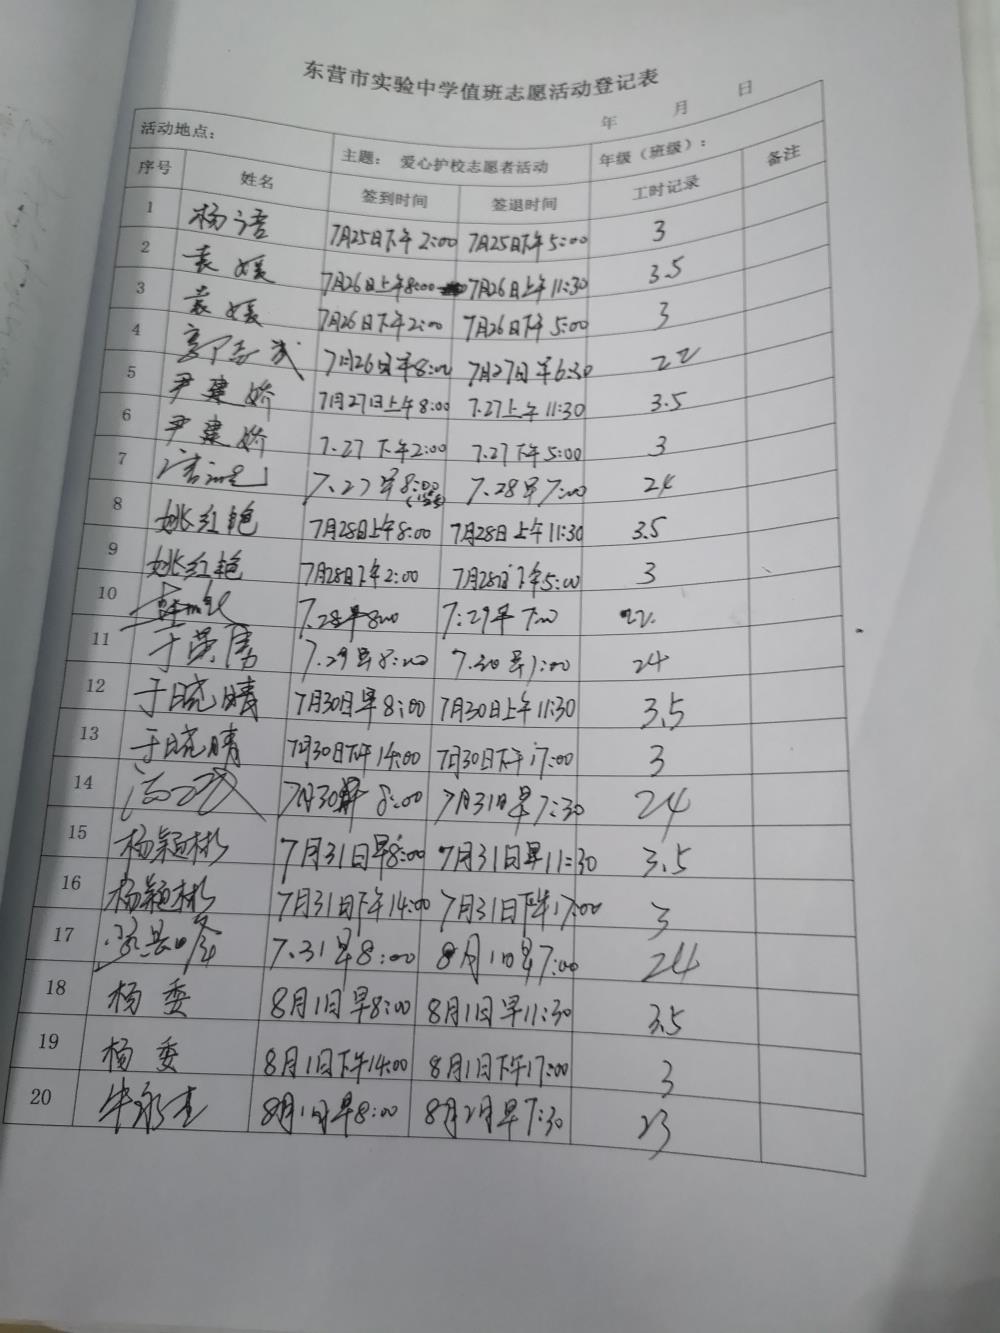 东营市实验中学值班志愿活动登记表
年 月 日
活动地点： 主题： 爱心护校志愿者活动 年级（班级）：
序号 姓名 签到时间 签退时间 工时记录 备注
1 杨语 7月25日下午2:00 7月25日下午5:00 3
2 袁媛 7月26日上午8:00 7月26日上午11:30 3.5
3 袁媛 7月26日下午2:00 7月26日下午5:00 3
4 7月26日早8:00 7月27日早6:30 22
5 尹建娇 7月27日上午8:00 7.27上午11:30 3.5
6 尹建娇 7.27下午2:00 7.27下午5:00 3
7 7.27早8:00 7.28早7:00 24
8 姚红艳 7月28日上午8:00 7月28日上午11:30 3.5
9 姚红艳 7月28日下午2:00 7月28日下午5:00 3
10 7.28早8:00 7.29早7:00 22
11 于 勇 7.29早8:00 7.30早7:00 24
12 于晓晴 7月30日早8:00 7月30日上午11:30 3.5
13 于晓晴 7月30日下午14:00 7月30日下午17:00 3
14 7月30早8:00 7月31日早7:30 24
15 杨颖彬 7月31日早8:00 7月31日早11:30 3.5
16 杨颖彬 7月31日下午14:00 7月31日下午17:00 3
17 7.31早8:00 8月1日早7:00 24
18 杨委 8月1日早8:00 8月1日早11:30 3.5
19 杨委 8月1日下午14:00 8月1日下午17:00 3
20 牛永 8月1日早8:00 8月2日早7:30 23